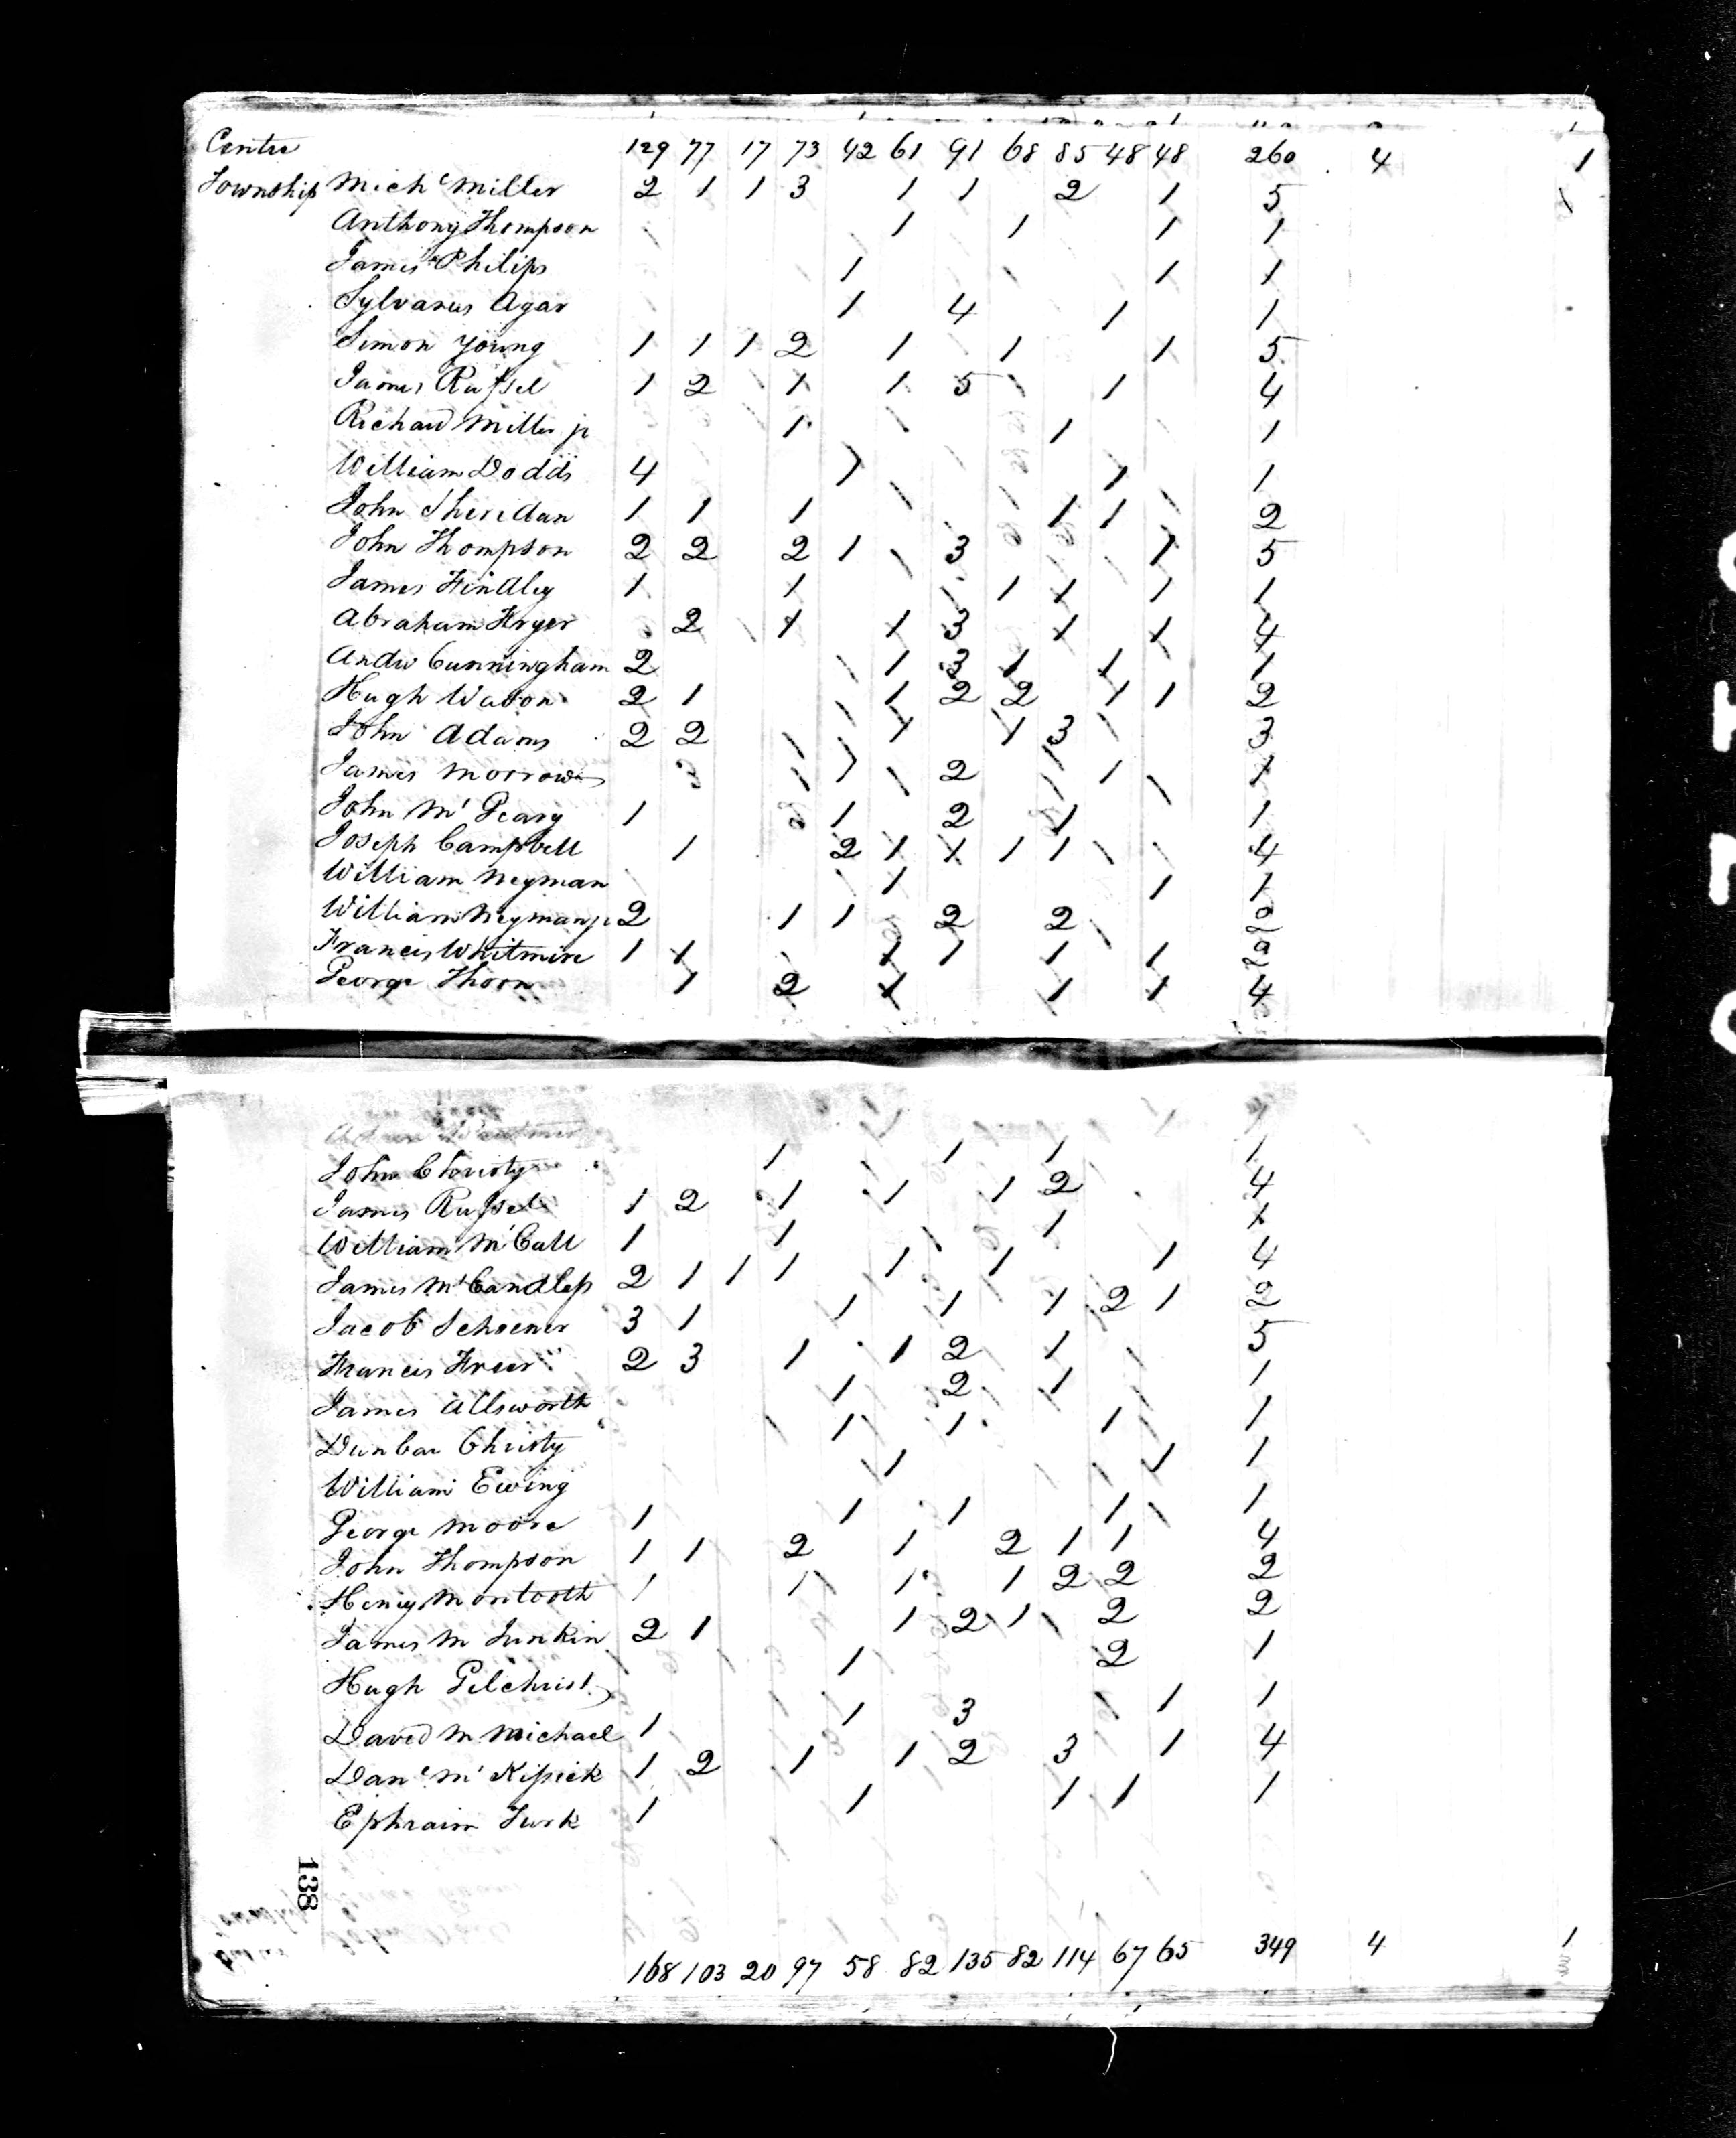 Centre 129 77 17 73 42 61 91 68 85 48 48 260 4 1
Township Mich Miller 2 1 1 3 1 1 2 1 5
Anthony Thompson 1 1 1 1
James Philips 1 1 1
Sylvanus Agar 1 4 1 1
Simon Young 1 1 1 2 1 1 1 5
James Russel 1 2 1 1 5 1 4
Richard Miller jr 1 1 1
William Dodds 4 1 1 1
John Sheridan 1 1 1 1 1 2
John Thompson 2 2 2 1 3 1 5
James Findley 1 1 1 1 1 1 1
Abraham Fryer 2 1 1 3 1 1 4
Andw Cunningham 2 1 3 1 1 1
Hugh Watson 2 1 1 2 2 1 1 2
John Adams 2 2 1 1 3 3
James Morrow 1 2 1 1
John McGeary 1 1 2 1 1
Joseph Campbell 1 2 1 1 1 1 4
William Neyman 1 1 1
William Neyman jr 2 1 1 2 2 2
Francis Whitmire 1 1 1 1 1 1 2
George Thorn 1 2 1 1 1 4
John Christy 1 1 1 1
James Russel 1 2 1 1 1 2 4
William McCall 1 1 1 1
James McCandless 2 1 1 1 1 1 1 4
Jacob Schoener 3 1 1 1 1 2 1 2
Francis Freer 2 3 1 1 2 1 5
James Allsworth 1 2 1 1
Dunbar Christy 1 1 1 1
William Ewing 1 1 1
George Moore 1 1 1 1 1
John Thompson 1 1 2 1 2 1 1 4
Henry Montooth 1 1 1 1 2 2 2
James M Junkin 2 1 1 2 1 2 2
Hugh Gilchrist 1 2 1
David M Michael 1 1 3 1 1
Danl Mc Kissick 1 2 1 1 2 3 1 4
Ephraim Turk 1 1 1 1 1
138
168 103 20 97 58 82 135 82 114 67 65 349 4 1